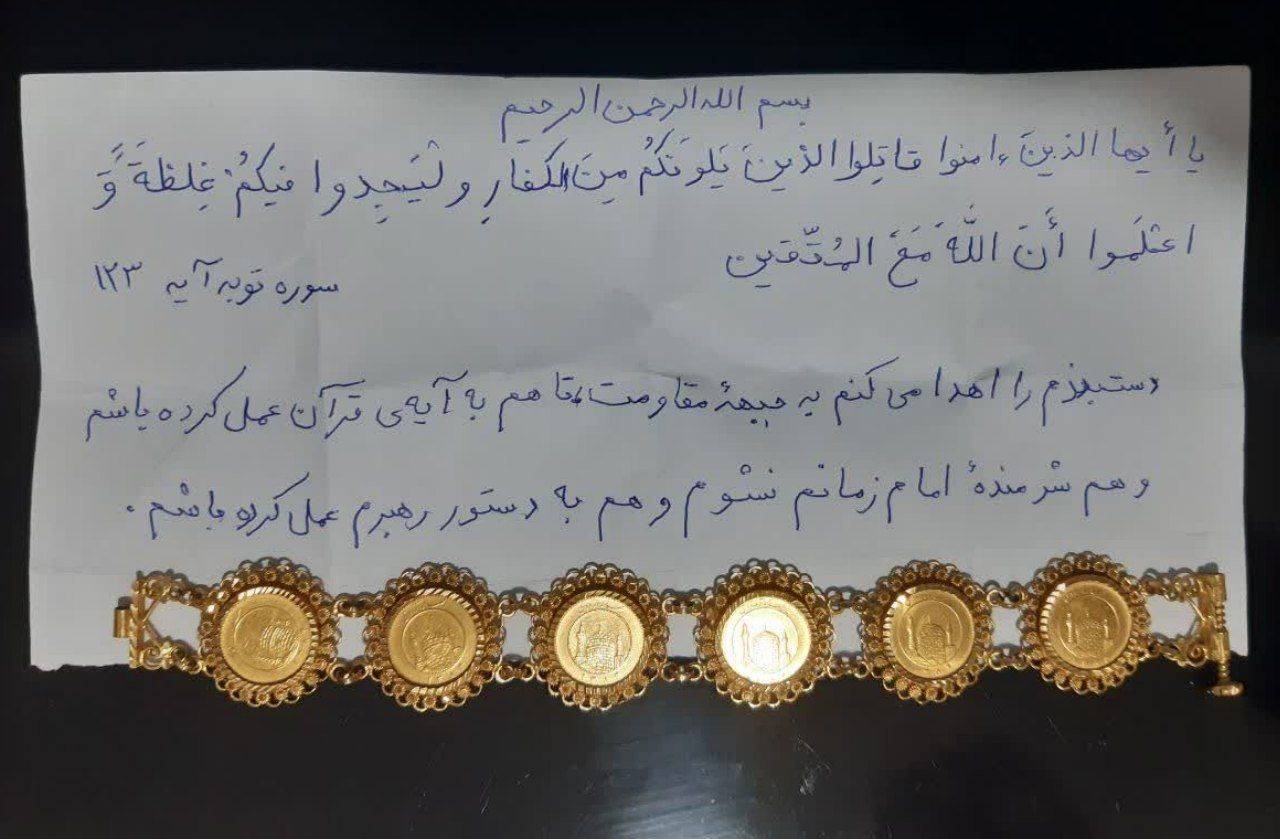 بسم الله الرحمن الرحیم
یا أیها الذینَ ءامنوا قاتِلوا الذینَ یَلونَکُم مِنَ الکفارِ ولْیَجِدوا فیکُمْ غِلظَةً وَ
اعْلَموا أَنَّ اللّٰهَ مَعَ المُتَّقین
سوره توبه آیه ۱۲۳
دستبندم را اهدا می کنم به جبههٔ مقاومت تا هم به آیه‌ی قرآن عمل کرده باشم
و هم شرمندهٔ امام زمانم نشوم و هم به دستور رهبرم عمل کرده باشم .